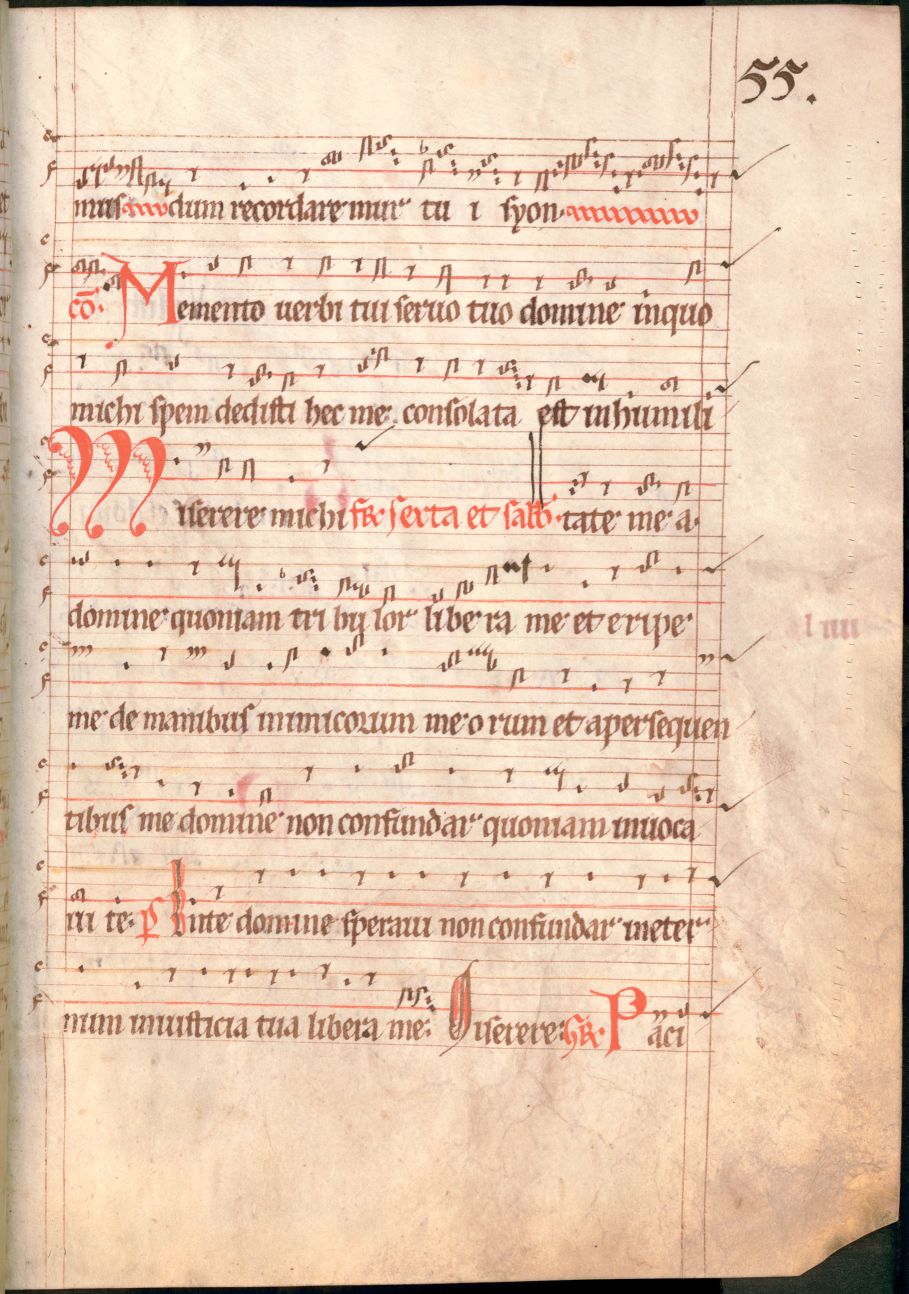 55.
mus dum recordaremur tu i syon
co Memento uerbi tui seruo tuo domine inquo
michi spem dedisti hec me consolata est in humili
Miserere michi sexta et tate mea
domine quoniam tri bu lor libe ra me et eripe
me de manibus inimicorum me o rum et apersequen
tibus me domine non confundar quoniam inuoca
ui te In te domine speraui non confundar ineter
num iniusticia tua libera me Miserere Paci